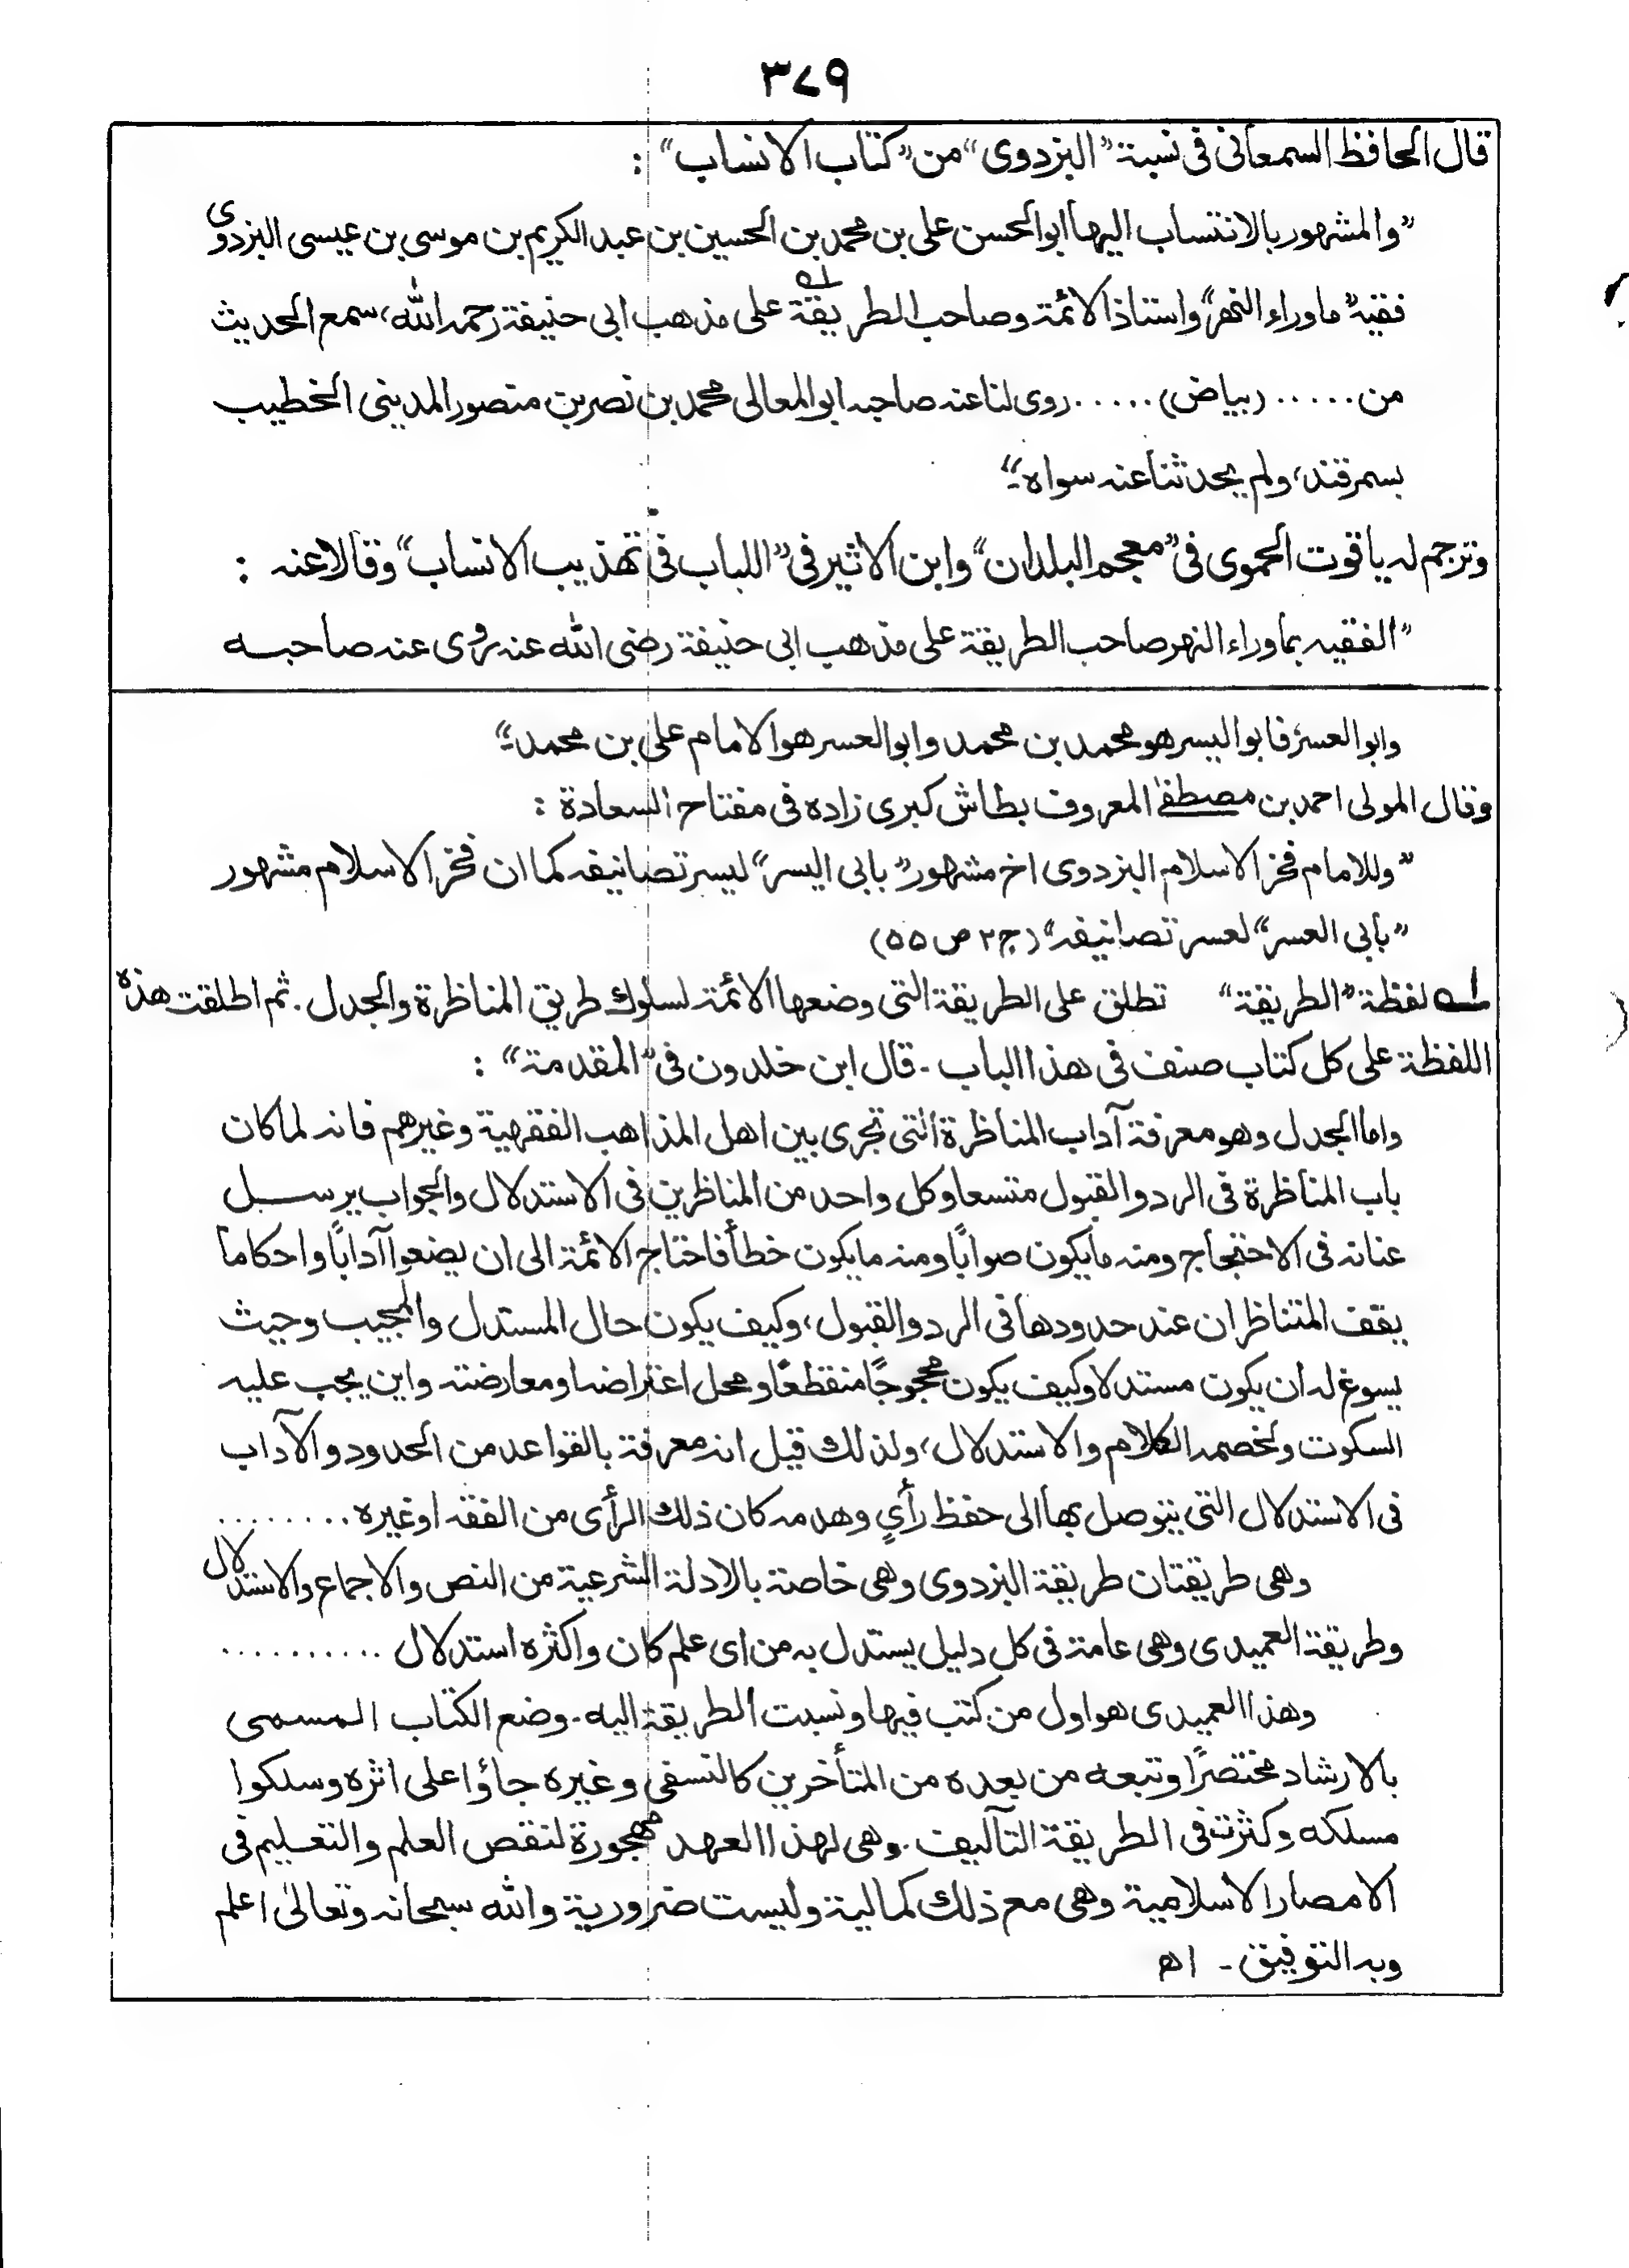 ٣٧٩
قال الحافظ السمعانی فی نسبة ”البزدوی“ من ”کتاب الانساب“ :
”والمشهور بالانتساب الیها ابوالحسن علی بن محمد بن الحسین بن عبدالکریم بن موسی بن عیسی البزدوی
فقیه ”ماوراء النهر“ واستاذ الائمة وصاحب الطریقة له علی مذهب ابی حنیفة رحمه الله، سمع الحدیث
من ..... (بیاض) ..... روی لنا عنه صاحبه ابوالمعالی محمد بن نصر بن منصور المدینی الخطیب
بسمرقند، ولم یحدثنا عنه سواه۔“
وترجم له یاقوت الحموی فی ”معجم البلدان“ وابن الاثیر فی ”اللباب فی تهذیب الانساب“ وقالا عنه :
”الفقیه بماوراء النهر صاحب الطریقة علی مذهب ابی حنیفة رضی الله عنه روی عنه صاحبه
وابوالعسر، فابوالیسر هو محمد بن محمد وابوالعسر هو الامام علی بن محمد۔“
وقال المولی احمد بن مصطفیٰ المعروف بطاش کبری زاده فی مفتاح السعادة :
”وللامام فخر الاسلام البزدوی اخ مشهور ”بابی الیسر“ لیسر تصانیفه کما ان فخر الاسلام مشهور
”بأبی العسر“ لعسر تصانیفه“ (ج ٢ ص ٥٥)
له لفظة ”الطریقة“ تطلق علی الطریقة التی وضعها الائمة لسلوك طریق المناظرة والجدل. ثم اطلقت هذه
اللفظة علی کل کتاب صنف فی هذا الباب - قال ابن خلدون فی ”المقدمة“ :
واما الجدل وهو معرفة آداب المناظرة التی تجری بین اهل المذاهب الفقهیة وغیرهم فانه لما کان
باب المناظرة فی الرد والقبول متسعا وکل واحد من المناظرین فی الاستدلال والجواب یرسل
عنانه فی الاحتجاج ومنه مایکون صوابًا ومنه مایکون خطأ فاحتاج الائمة الی ان یضعوا آدابًا واحکاماً
یقف المتناظران عند حدودها فی الرد والقبول، وکیف یکون حال المستدل والمجیب وحیث
یسوغ له ان یکون مستدلا وکیف یکون محجوجًا منقطعًا ومحل اعتراضه او معارضته واین یجب علیه
السکوت ولخصمه الکلام والاستدلال، ولذلك قیل انه معرفة بالقواعد من الحدود والآداب
فی الاستدلال التی یتوصل بها الی حفظ رأیٍ وهدمه کان ذلك الرأی من الفقه او غیره ........
وهی طریقتان طریقة البزدوی وهی خاصة بالادلة الشرعیة من النص والاجماع والاستدلال
وطریقة العمیدی وهی عامة فی کل دلیل یستدل به من ای علم کان واکثره استدلال ..........
وهذا العمیدی هو اول من کتب فیها ونسبت الطریقة الیه. وضع الکتاب المسمی
بالارشاد مختصرًا وتبعه من بعده من المتأخرین کالنسفی وغیره جاؤا علی اثره وسلکوا
مسلکه وکثرت فی الطریقة التآلیف. وهی لهذا العهد مهجورة لنقص العلم والتعلیم فی
الامصار الاسلامیة وهی مع ذلك کمالیة ولیست ضروریة والله سبحانه وتعالیٰ اعلم
وبه التوفیق - اه